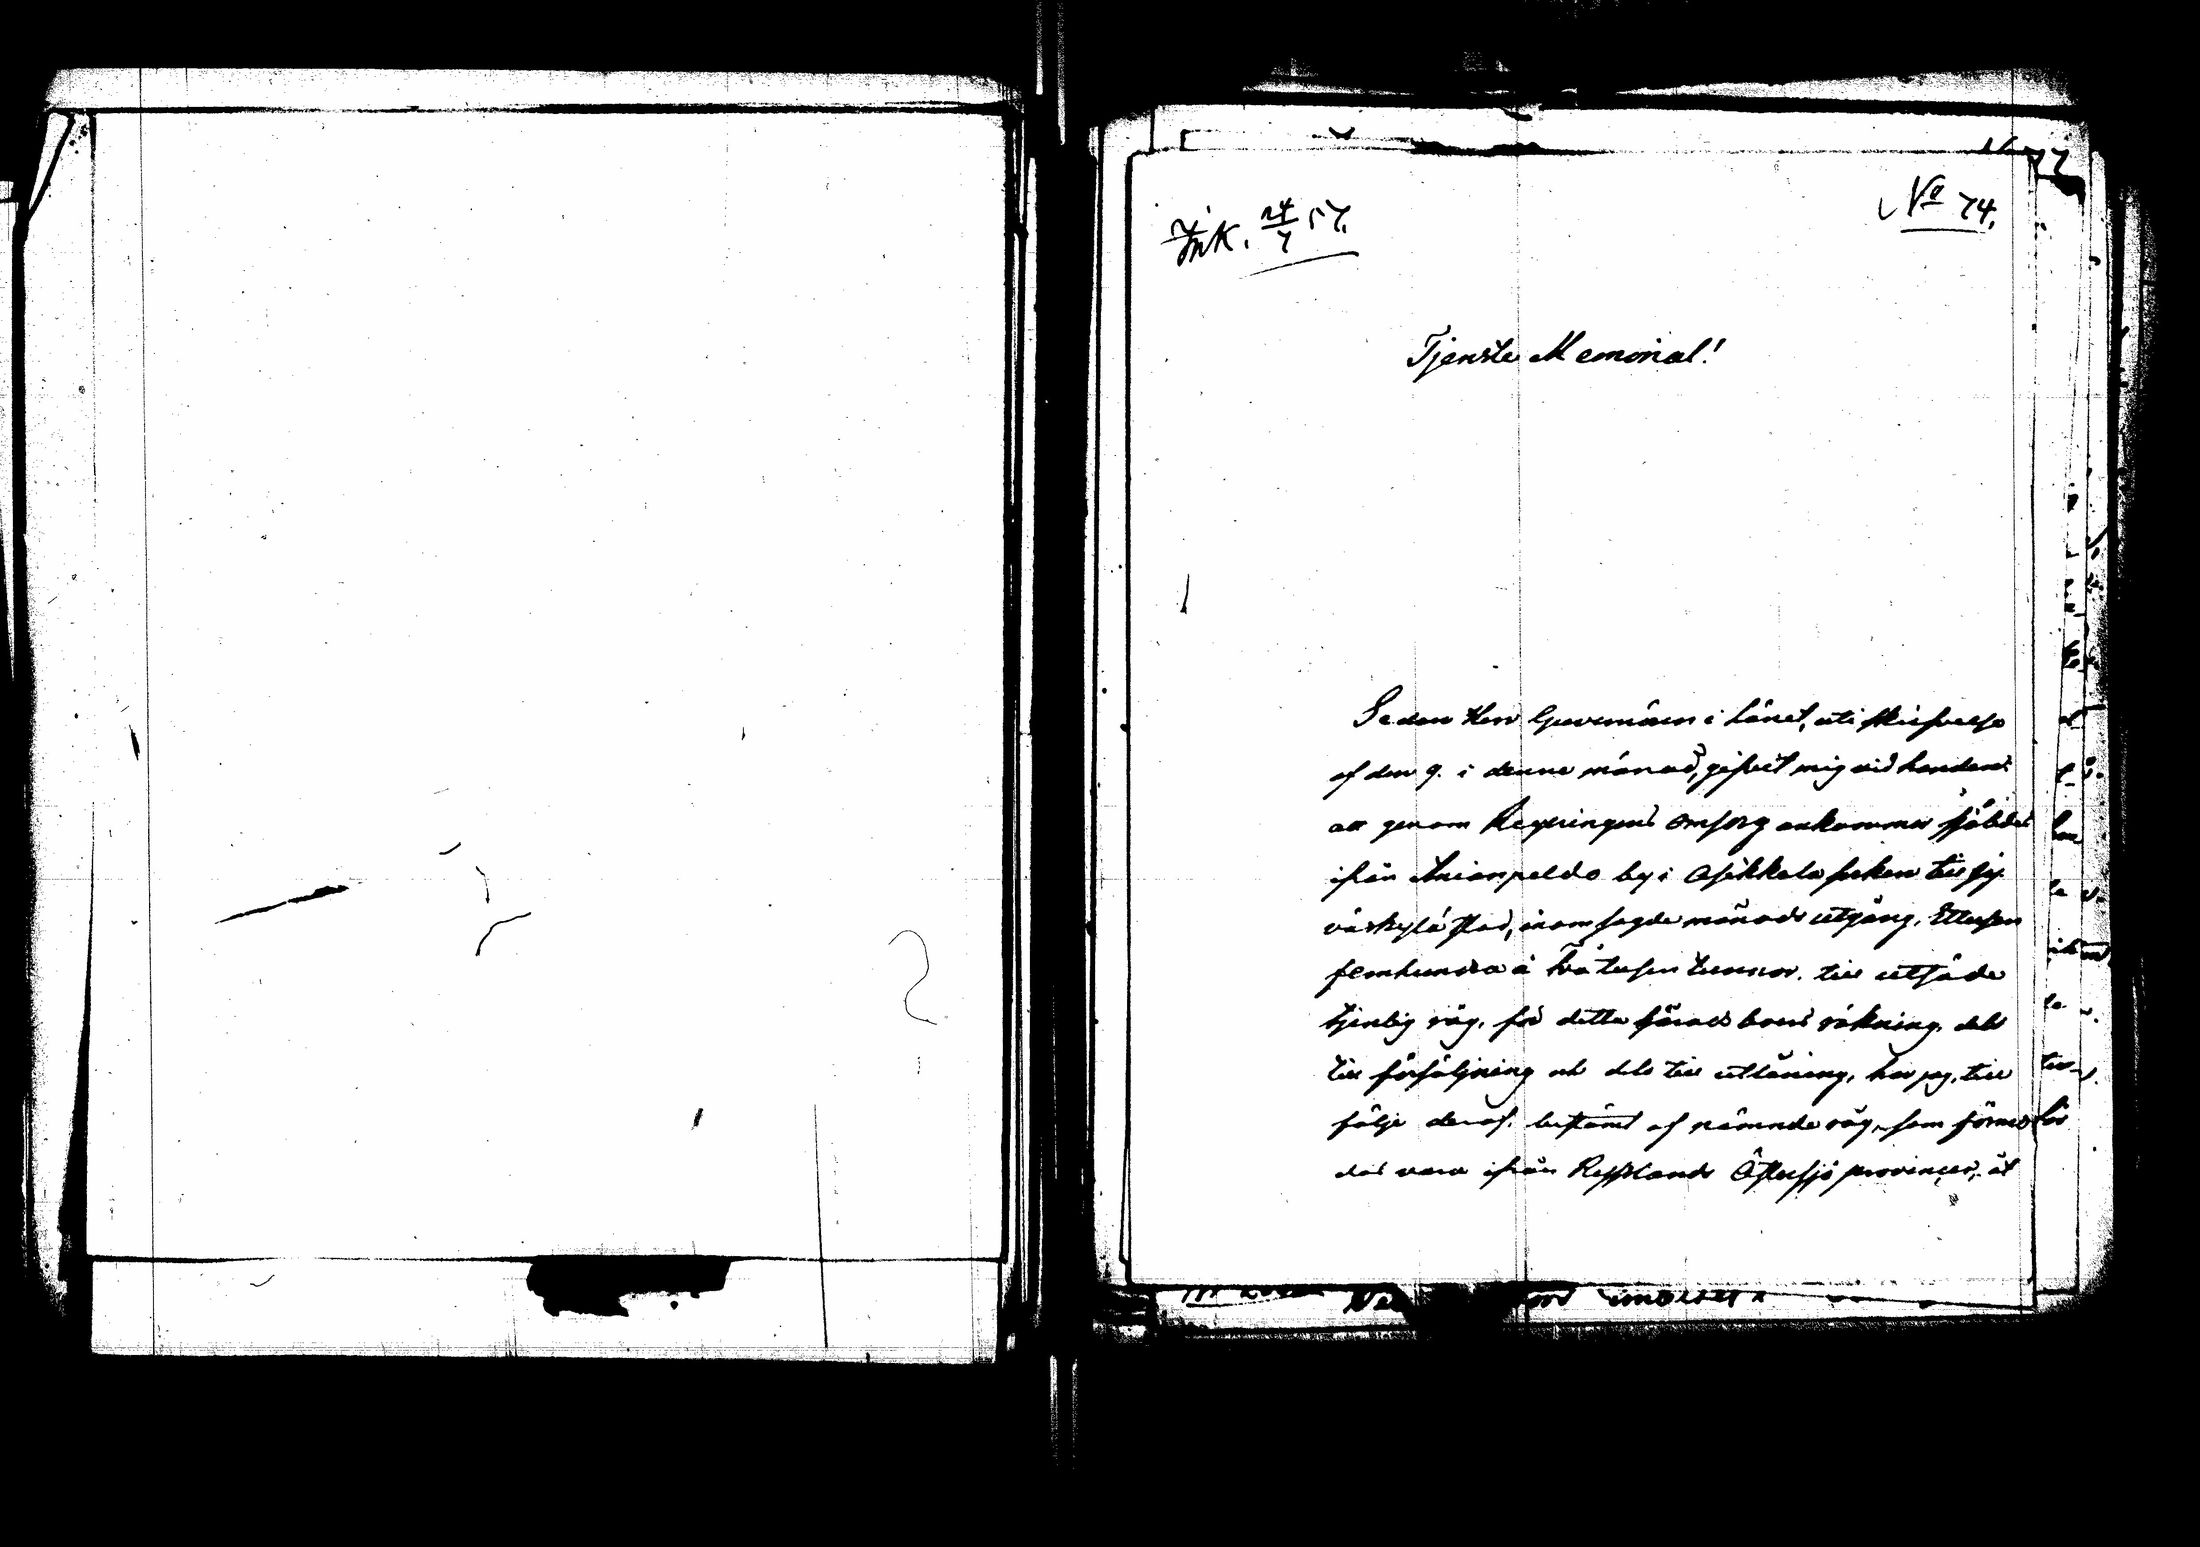 Ink. 24/7 57.
No 74.
Tjenste Memorial!
Sedan Herr Guvernören i länet, uti skrifvelse
af den 9. i denne månad, gifvit mig vid handen:
att genom Regeringens omsorg ankommer sjöledes
ifrån Anianpeldo by i Asikkala socken till Jy-
väskylä stad, inom sagde månads utgång, Ettusen
femhundra à Tvåtusen tunnor till utsäde
tjenlig råg, för detta härads boers räkning, dels
till försäljning och dels till utlåning, har jag, till
följe deraf, bestämt af nämnde råg, som förmo-
das vara ifrån Rysslands Östersjö provincer, åt